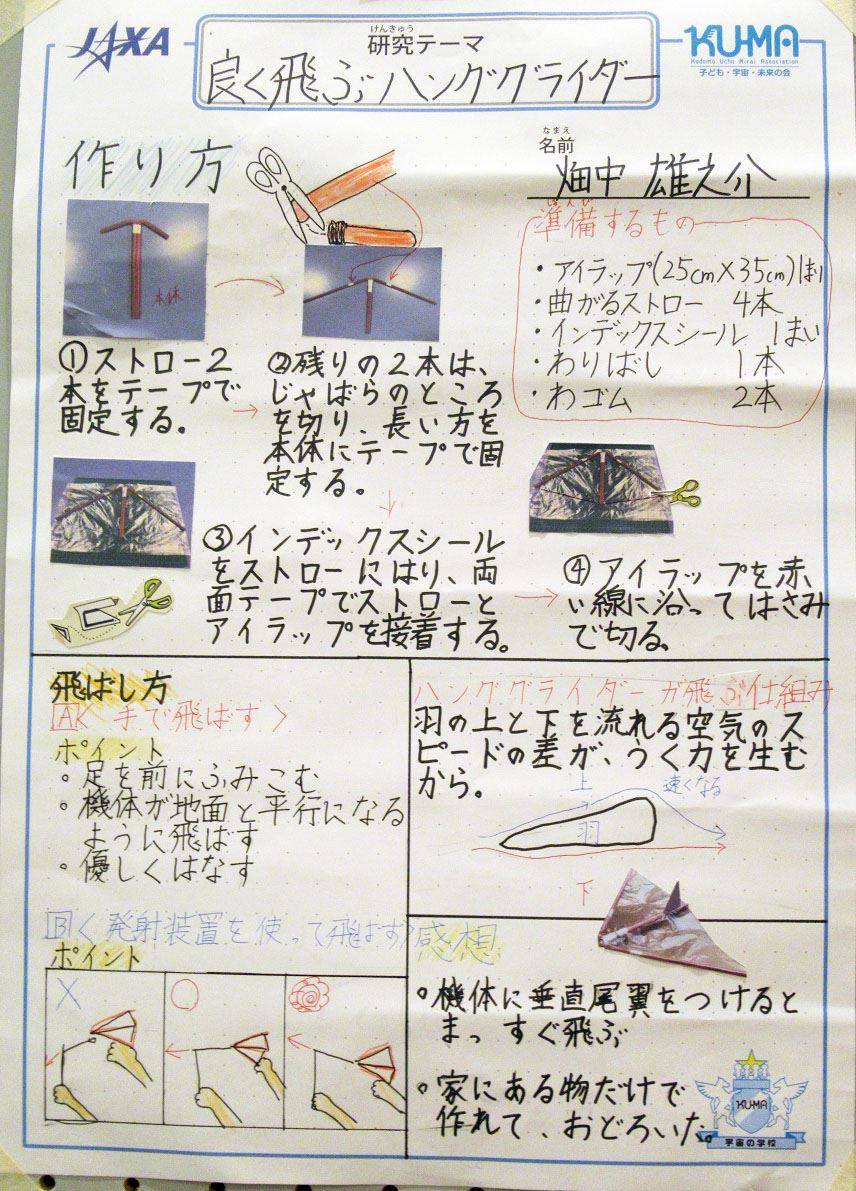 JAXA
けんきゅう
研究テーマ
良く飛ぶハンググライダー
KU-MA
Kodomo Uchu Mirai Association
子ども・宇宙・未来の会
作り方
なまえ
名前
畑中 雄之介
じゅんび
準備するもの
・アイラップ(25cm×35cm)1まい
・曲がるストロー 4本
・インデックスシール 1まい
・わりばし 1本
・わゴム 2本
本体
①ストロー2
本をテープで
固定する。
②残りの2本は、
じゃばらのところ
を切り、長い方を
本体にテープで固
定する。
③インデックスシール
をストローにはり、両
面テープでストローと
アイラップを接着する。
④アイラップを赤
い線に沿ってはさみ
で切る。
飛ばし方
A<手で飛ばす>
ポイント
○足を前にふみこむ
○機体が地面と平行になる
ように飛ばす
○優しくはなす
B<発射装置を使って飛ばす>
ポイント
×
○
ハンググライダーが飛ぶ仕組み
羽の上と下を流れる空気のス
ピードの差が、うく力を生む
から。
上
速くなる
羽
下
感想
○機体に垂直尾翼をつけると
まっすぐ飛ぶ
○家にある物だけで
作れて、おどろいた。
KU-MA
宇宙の学校